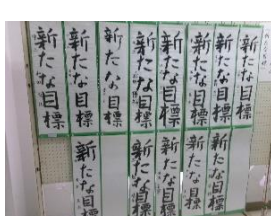 新たな目標
新たな目標
新たな目標
新たな目標
新たな目標
新たな目標
新たな目標
新たな目標
新たな目標
新たな目標
新たな目標
新たな目標